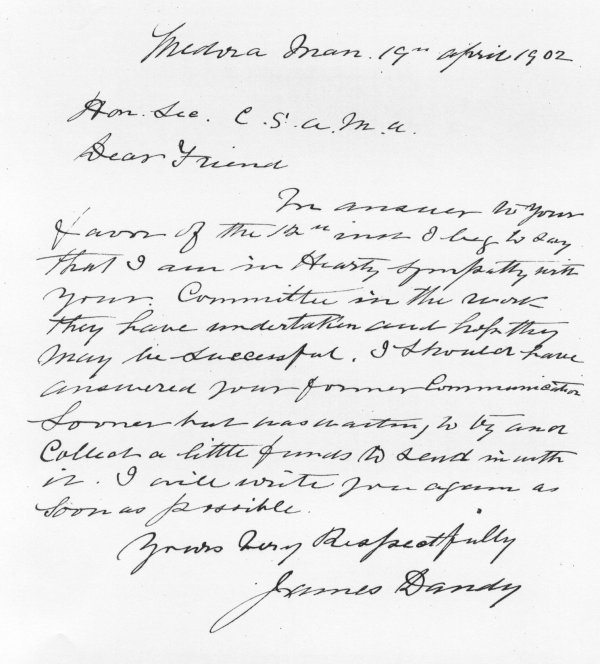 Medora Man. 19th april 1902
Hon. Sec. C. S. a. M. a.
Dear Friend
In answer to your
favor of the 12th inst I beg to say
that I am in Hearty sympathy with
your Committee in the work
they have undertaken and hope they
may be successful. I should have
answered your former Communication
Sooner but was waiting to try and
Collect a little funds to send in with
it. I will write you again as
soon as possible.
Yours Very Respectfully
James Dandy